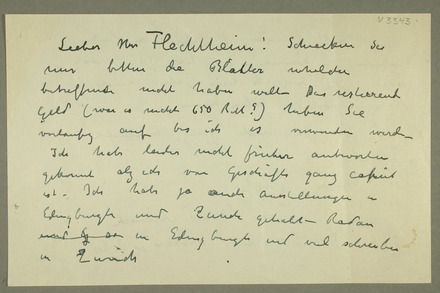 V 3343
Lieber Herr Flechtheim! Schicken Sie
mir bitte die Blätter welche
betreffende nicht haben will. Das restierende
Geld (war es nicht 650 RM?) heben Sie
vorläufig auf bis ich es verwenden werde
Ich habe leider nicht früher antworten
gekonnt als ich vom Geschäft ganz caput
ist. Ich habe ja auch Ausstellungen in
Edingburgh und Zürich gehalten Reden
in Edingburgh und viel schreiben
in Zürich.